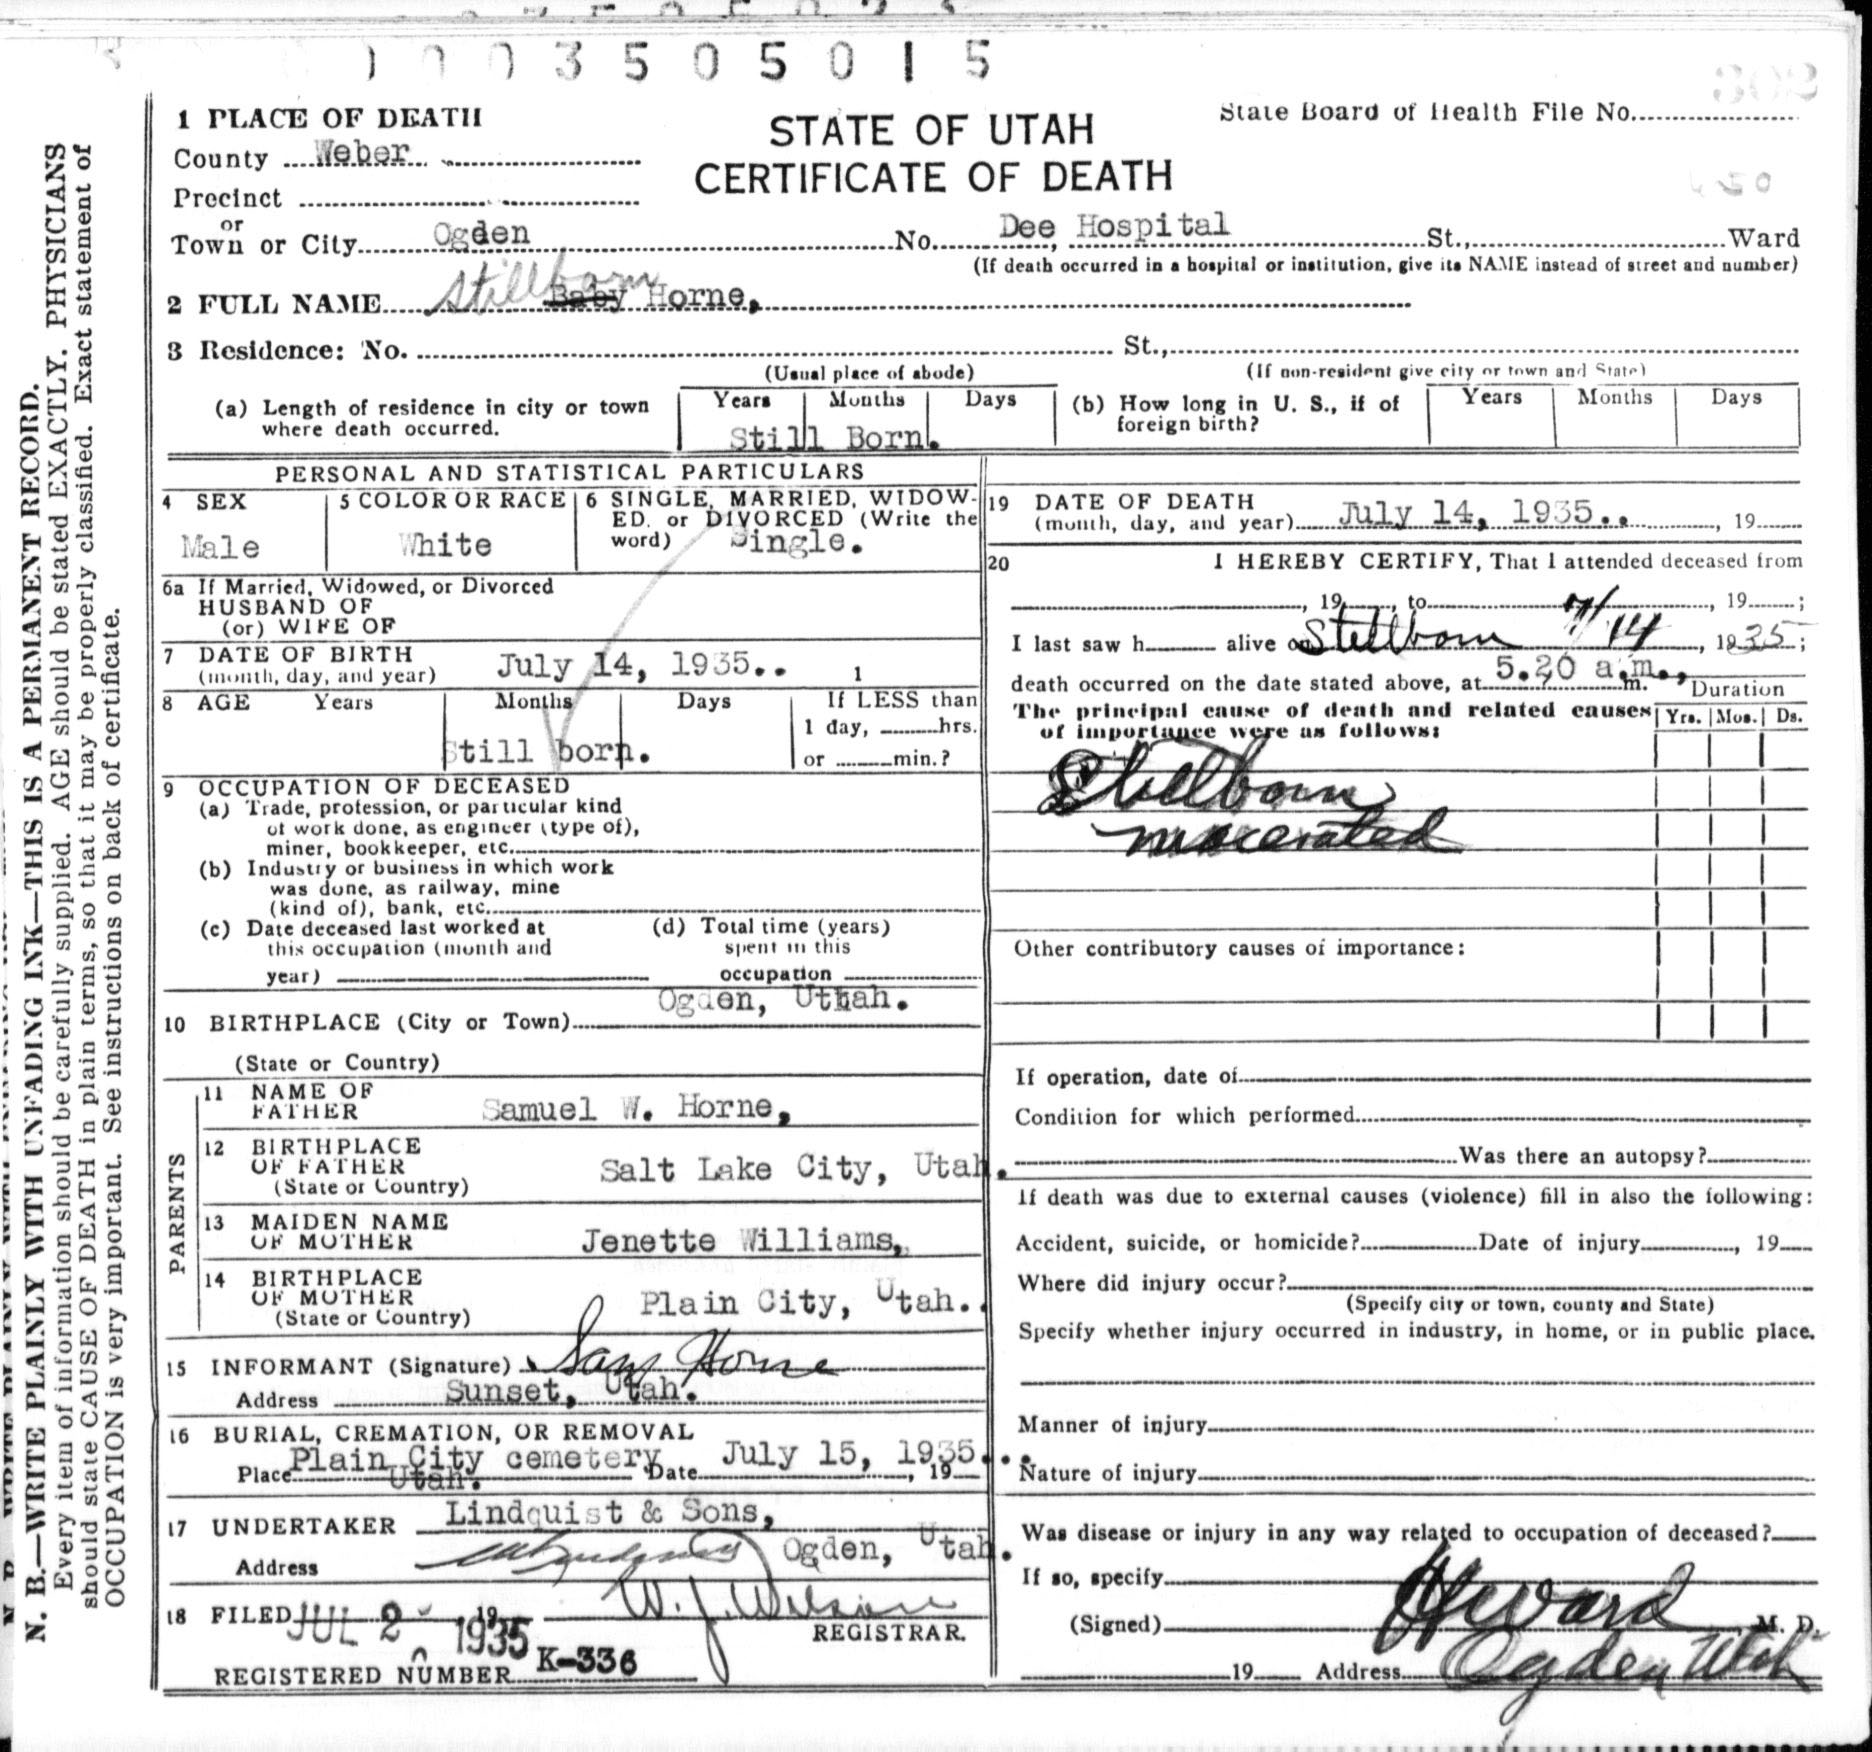 0003505015
302
1 PLACE OF DEATH
STATE OF UTAH
CERTIFICATE OF DEATH
State Board of Health File No.
County Weber
Precinct
or
Town or City Ogden No. Dee Hospital St., Ward
(If death occurred in a hospital or institution, give its NAME instead of street and number)
2 FULL NAME Stillborn Baby Horne,
3 Residence: No. St.,
(Usual place of abode) (If non-resident give city or town and State)
(a) Length of residence in city or town where death occurred. Years Months Days Still Born.
(b) How long in U. S., if of foreign birth? Years Months Days
PERSONAL AND STATISTICAL PARTICULARS
4 SEX Male
5 COLOR OR RACE White
6 SINGLE, MARRIED, WIDOW-
ED, or DIVORCED (Write the
word) Single.
6a If Married, Widowed, or Divorced
HUSBAND OF
(or) WIFE OF
7 DATE OF BIRTH
(month, day, and year) July 14, 1935.. 1
8 AGE Years Months Days If LESS than
1 day, hrs.
or min.?
Still born.
9 OCCUPATION OF DECEASED
(a) Trade, profession, or particular kind
of work done, as engineer (type of),
miner, bookkeeper, etc.
(b) Industry or business in which work
was done, as railway, mine
(kind of), bank, etc.
(c) Date deceased last worked at
this occupation (month and
year)
(d) Total time (years)
spent in this
occupation
Ogden, Uttah.
10 BIRTHPLACE (City or Town)
(State or Country)
PARENTS
11 NAME OF
FATHER Samuel W. Horne,
12 BIRTHPLACE
OF FATHER
(State or Country) Salt Lake City, Utah.
13 MAIDEN NAME
OF MOTHER Jenette Williams,
14 BIRTHPLACE
OF MOTHER
(State or Country) Plain City, Utah..
15 INFORMANT (Signature) Sam Horne
Address Sunset, Utah.
16 BURIAL, CREMATION, OR REMOVAL
Place Plain City cemetery Date July 15, 1935... , 19
Utah.
17 UNDERTAKER Lindquist & Sons,
Address Ogden, Utah.
18 FILED JUL 2 1935 19 W. J. Wilson
REGISTRAR.
REGISTERED NUMBER K-336
19 DATE OF DEATH
(month, day, and year) July 14, 1935.. , 19
20 I HEREBY CERTIFY, That I attended deceased from
, 19 , to , 19 ;
I last saw h alive on Stillborn 7/14, 1935;
death occurred on the date stated above, at 5.20 a.m., m.
Duration
The principal cause of death and related causes
of importance were as follows:
Yrs. Mos. Ds.
Stillborn
macerated
Other contributory causes of importance:
If operation, date of
Condition for which performed
Was there an autopsy?
If death was due to external causes (violence) fill in also the following:
Accident, suicide, or homicide? Date of injury , 19
Where did injury occur?
(Specify city or town, county and State)
Specify whether injury occurred in industry, in home, or in public place.
Manner of injury
Nature of injury
Was disease or injury in any way related to occupation of deceased?
If so, specify
(Signed) Ward M. D.
19 Address Ogden Utah
N. B.—WRITE PLAINLY WITH UNFADING INK—THIS IS A PERMANENT RECORD.
Every item of information should be carefully supplied. AGE should be stated EXACTLY. PHYSICIANS
should state CAUSE OF DEATH in plain terms, so that it may be properly classified. Exact statement of
OCCUPATION is very important. See instructions on back of certificate.